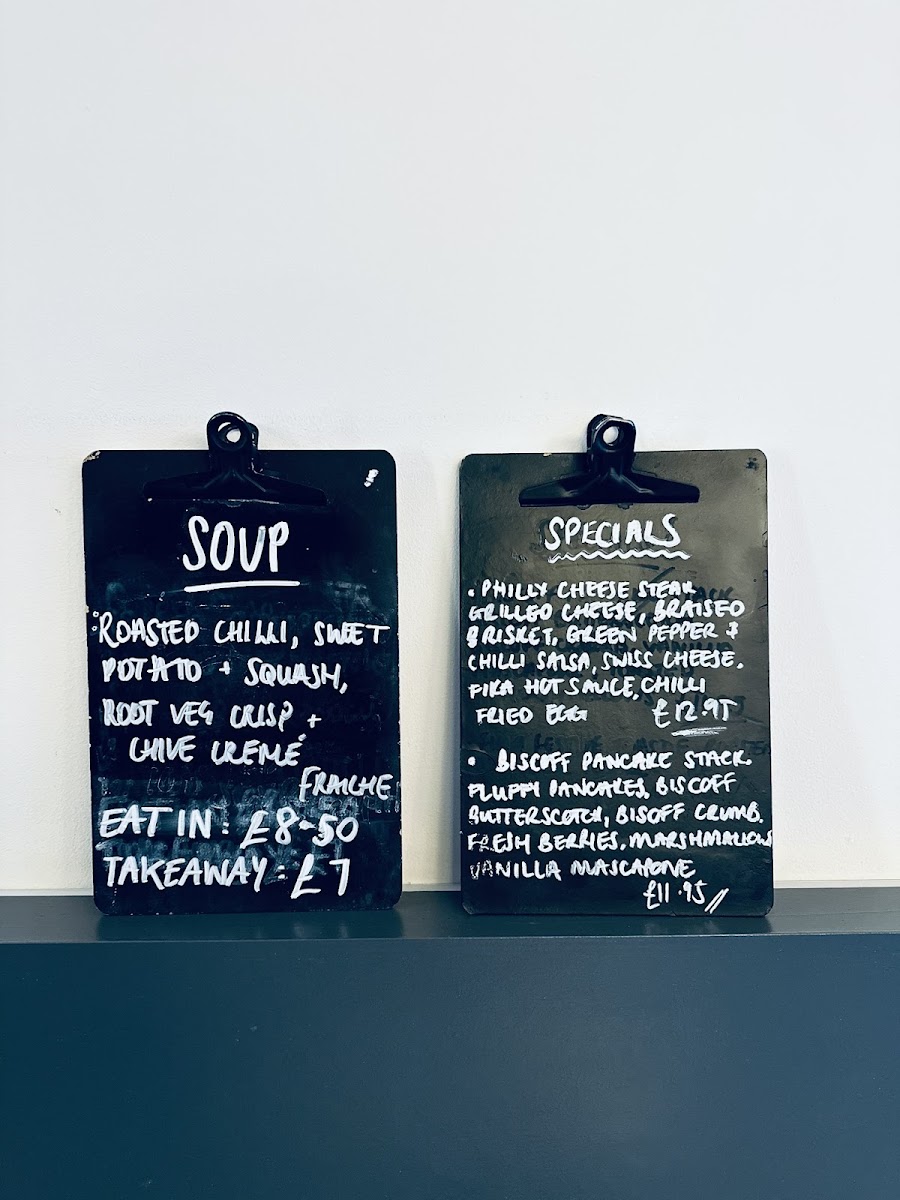 SOUP
ROASTED CHILLI, SWEET
POTATO + SQUASH,
ROOT VEG CRISP +
CHIVE CREMÉ
FRAICHE
EAT IN: £8-50
TAKEAWAY: £7
SPECIALS
• PHILLY CHEESE STEAK
GRILLED CHEESE, BRAISED
BRISKET, GREEN PEPPER &
CHILLI SALSA, SWISS CHEESE.
PIKA HOT SAUCE, CHILLI
FRIED EGG £12.95
• BISCOFF PANCAKE STACK.
FLUFFY PANCAKES, BISCOFF
BUTTERSCOTCH, BISOFF CRUMB.
FRESH BERRIES, MARSHMALLOWS
VANILLA MASCAPONE
£11.95